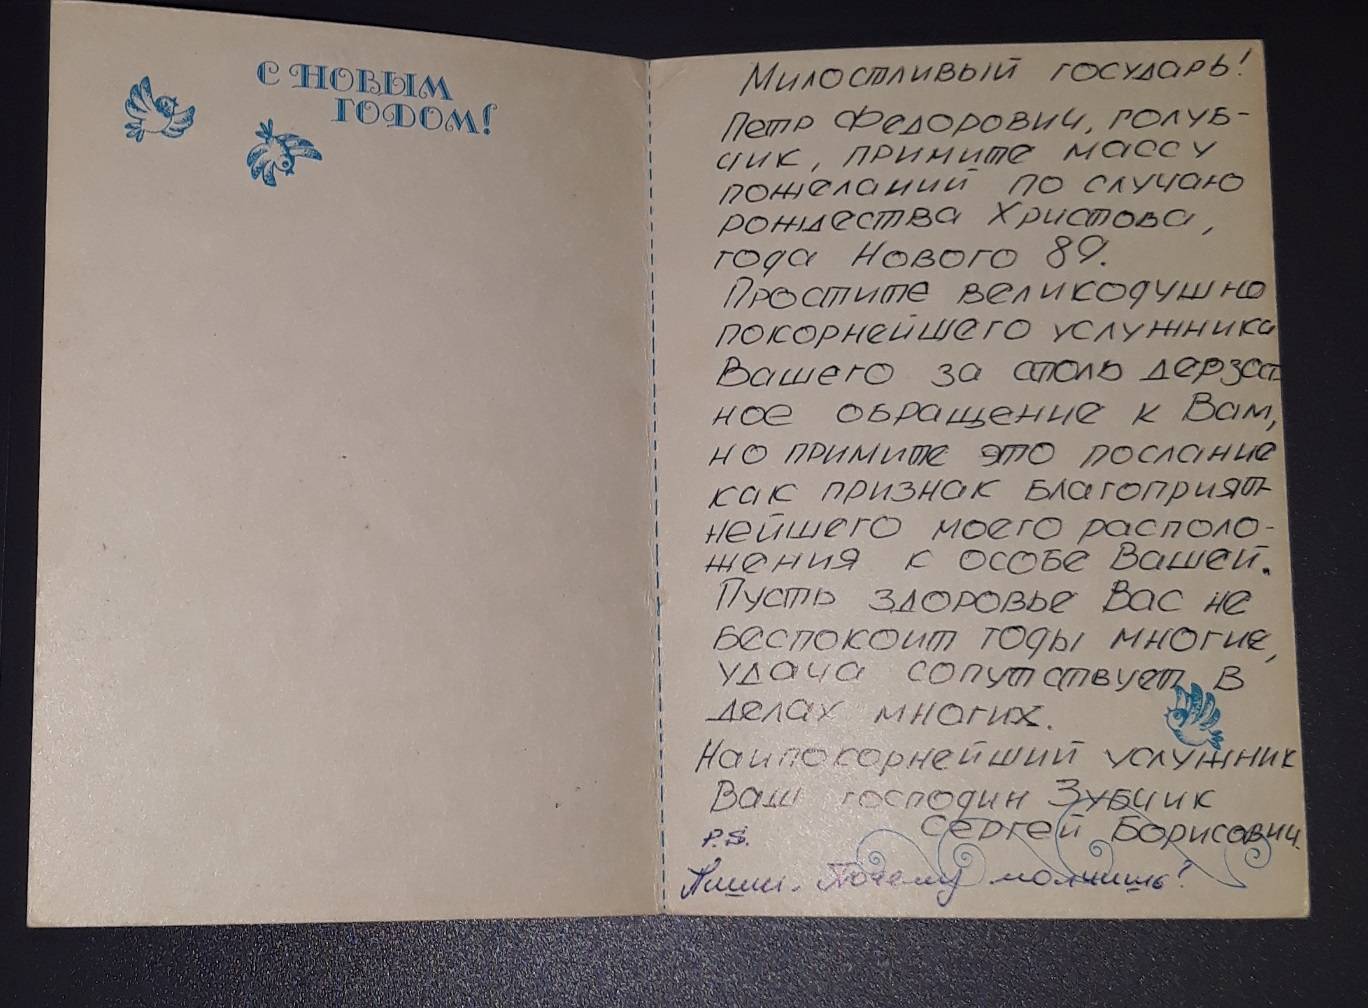 С НОВЫМ
ГОДОМ!
Милостливый государь!
Петр Федорович, голуб-
чик, примите массу
пожеланий по случаю
рождества Христова,
года Нового 89.
Простите великодушно
покорнейшего услужника
Вашего за столь дерзост
ное обращение к Вам,
но примите это послание
как признак благоприят-
нейшего моего располо-
жения к особе Вашей.
Пусть здоровье Вас не
беспокоит годы многие,
удача сопутствует в
делах многих.
Наипокорнейший услужник
Ваш господин Зубчик
Сергей Борисович.
P.S.
Пиши. Почему молчишь?